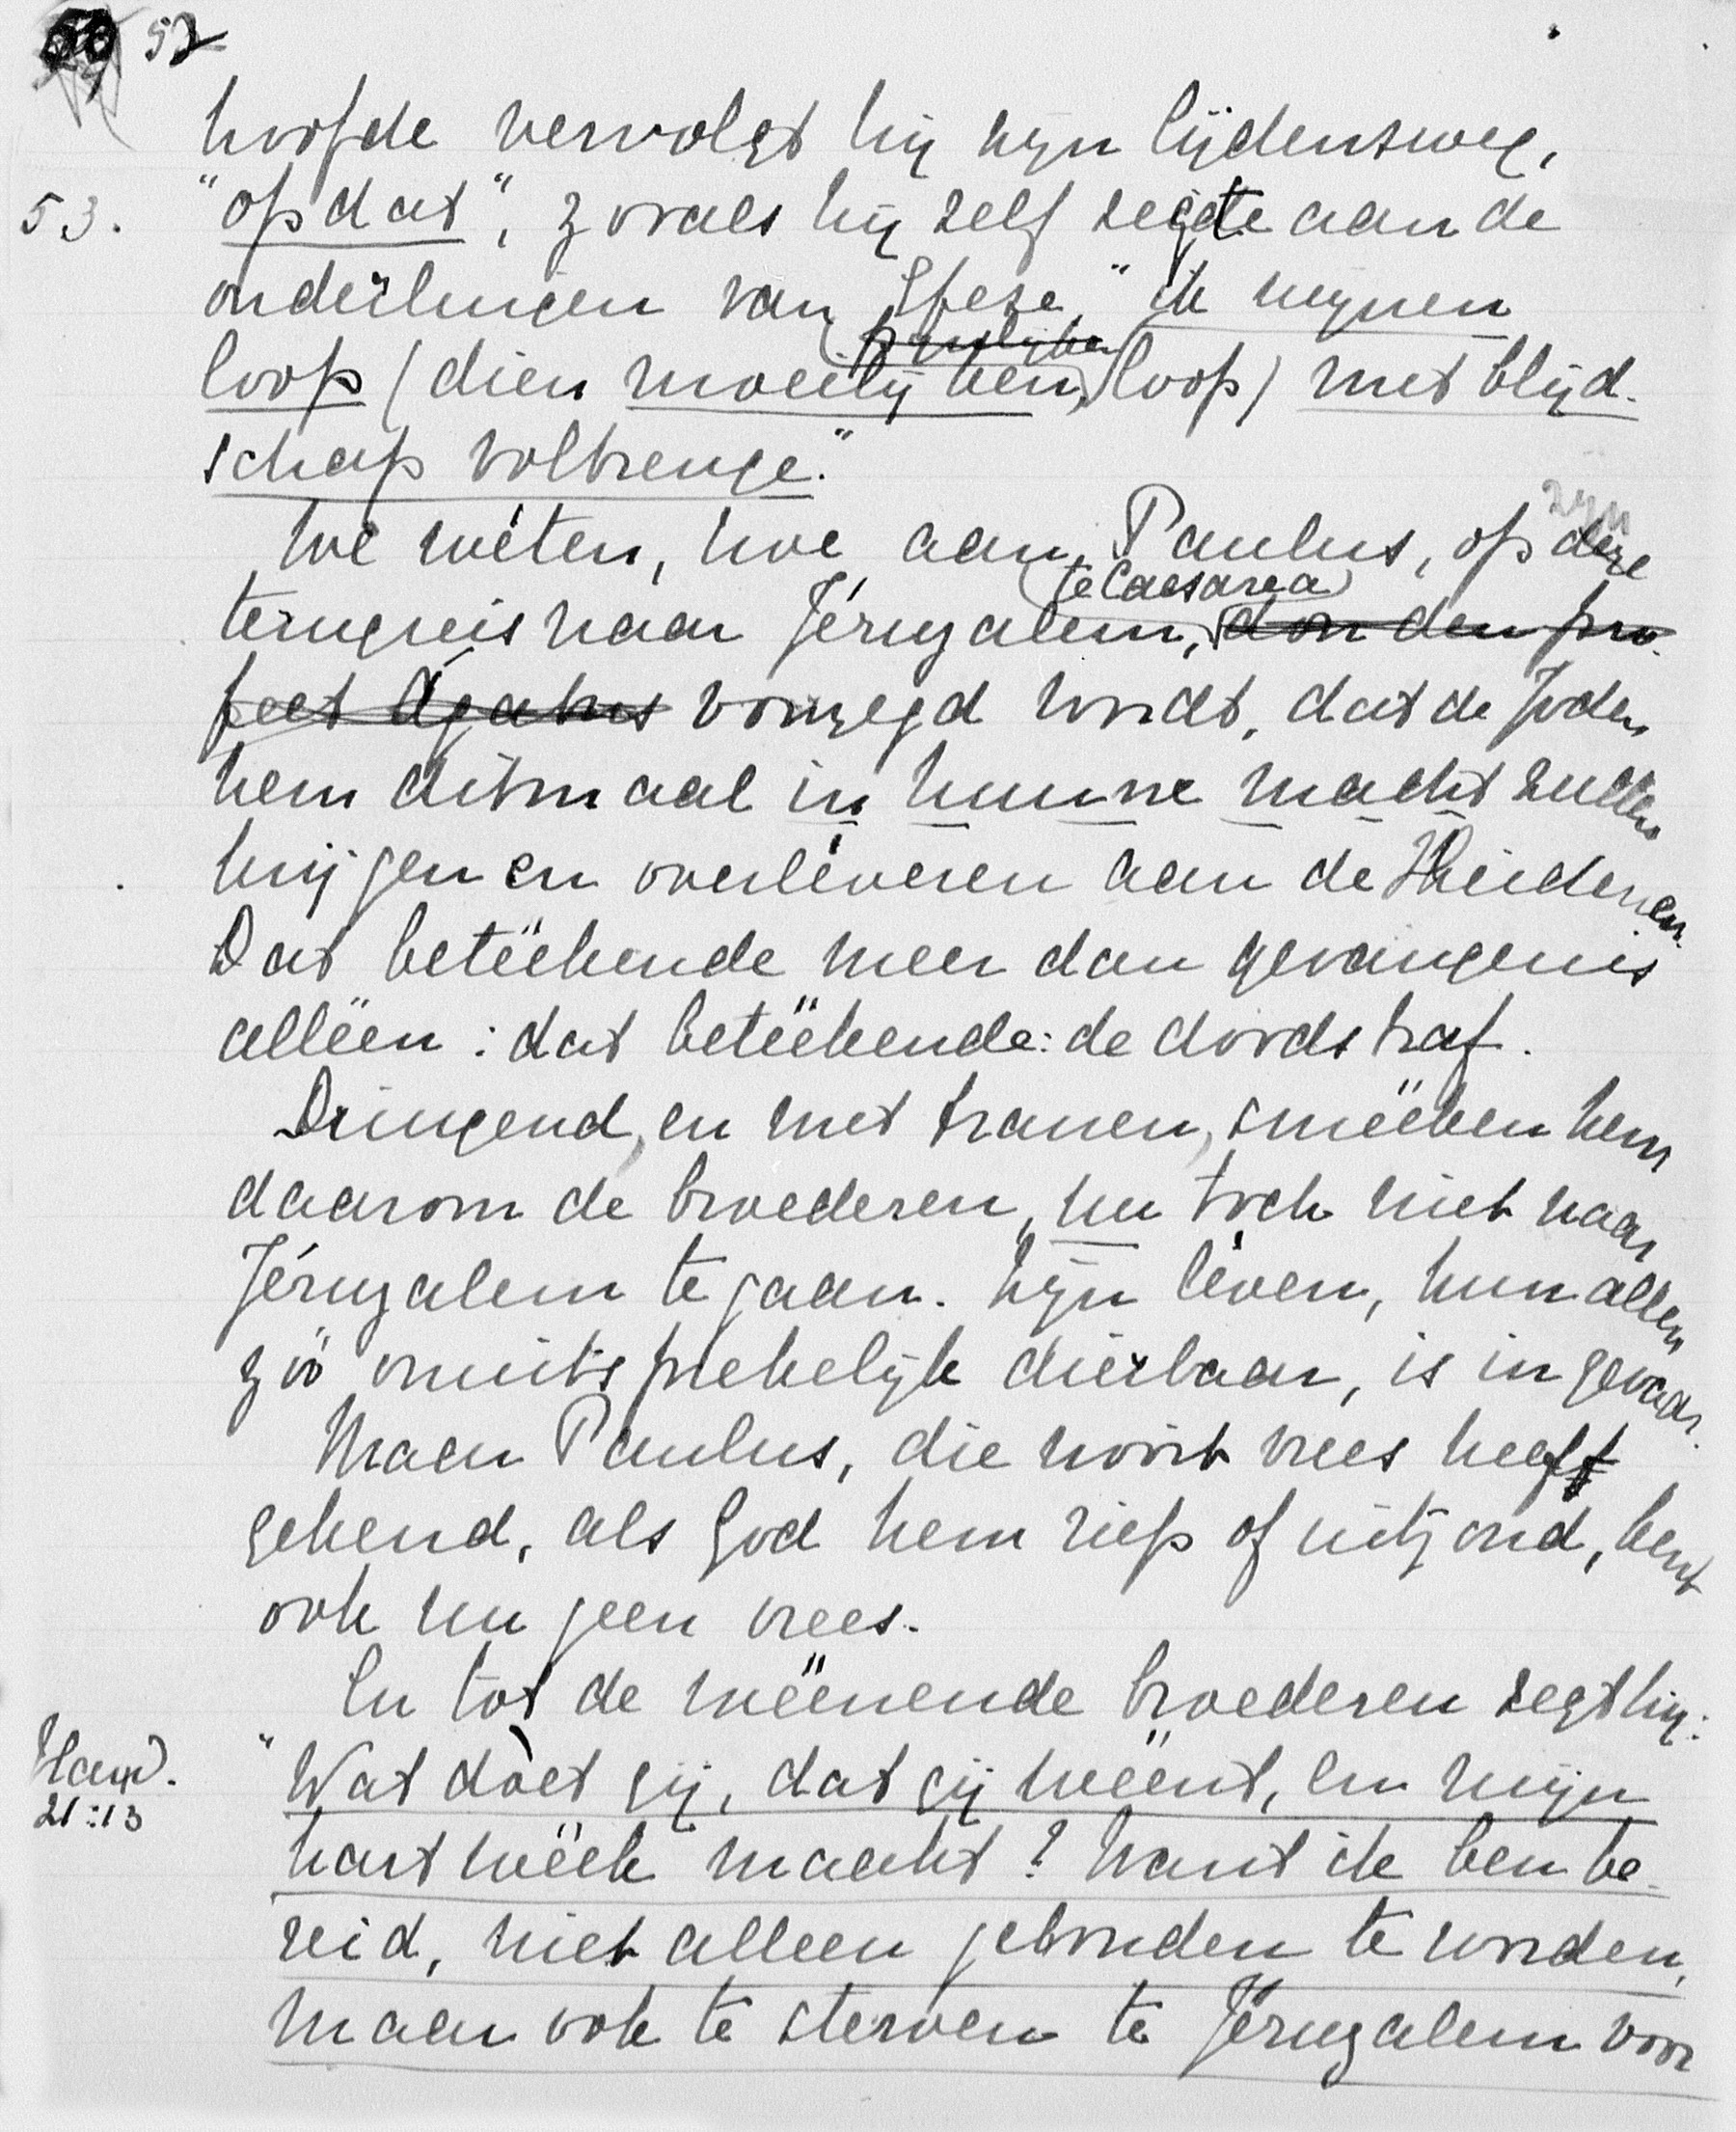 52
hoofde vervolgt hij zijn lijdensweg,
53. "opdat", zooals hij zelf zegde aan de
ouderlingen van Efeze, "ik mijnen
loop (dien moeilijken, loop) met blijd-
schap volbrenge."
We wéten, hoe aan Paulus, op zijn deze
te Caesarea
terugreis naar Jéruzalem, door den pro-
feet Ágabus voorzegd wordt, dat de Joden
hem ditmaal in hunne macht zullen
krijgen en overléveren aan de Heidenen.
Dat betëekende meer dan gevangenis
allëen: dat betëekende: de doodstraf.
Dringend, en met tranen, smëeken hem
daarom de broederen, nu toch niet naar
Jéruzalem te gaan. Zijn léven, hun allen
zóó onuitsprekelijk dierbaar, is in gevaar.
Maar Paulus, die nooit vrees heeft
gekend, als God hem riep of uitzond, kent
ook nu geen vrees.
En tot de wëenende broederen zegt hij:
Hand. 21:13
"Wat dòet gij, dat gij wëent, en mijn
hart wëek maakt? Want ik ben be-
reid, niet alleen gebonden te worden,
maar ook te sterven te Jéruzalem voor